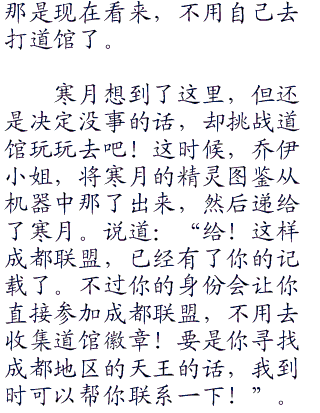 那是现在看来，不用自己去
打道馆了。
寒月想到了这里，但还
是决定没事的话，却挑战道
馆玩玩去吧！这时候，乔伊
小姐，将寒月的精灵图鉴从
机器中那了出来，然后递给
了寒月。说道：“给！这样
成都联盟，已经有了你的记
载了。不过你的身份会让你
直接参加成都联盟，不用去
收集道馆徽章！要是你寻找
成都地区的天王的话，我到
时可以帮你联系一下！”。